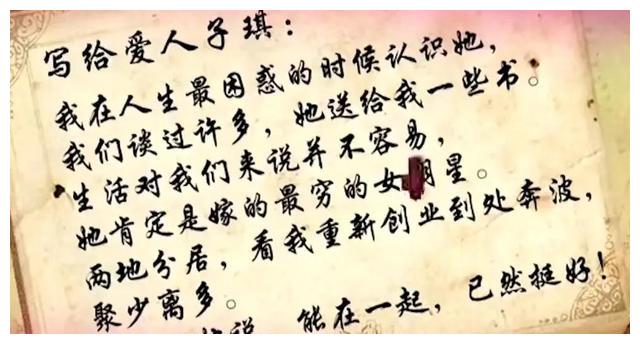 写给爱人子琪：
我在人生最困惑的时候认识她，
我们谈过许多，她送给我一些书。
生活对我们来说并不容易，
她肯定是嫁的最穷的女明星。
两地分居，看我重新创业到处奔波，
聚少离多。
说，能在一起，已然挺好！